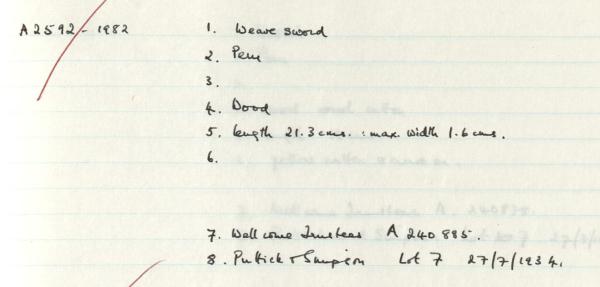 A 2592 - 1982 1. Weave sword
2. Peru
3.
4. Wood
5. length 21.3 cms. : max. width 1.6 cms.
6.
7. Wellcome Trustees A 240885.
8. Puttick & Simpson Lot 7 27/7/1934.